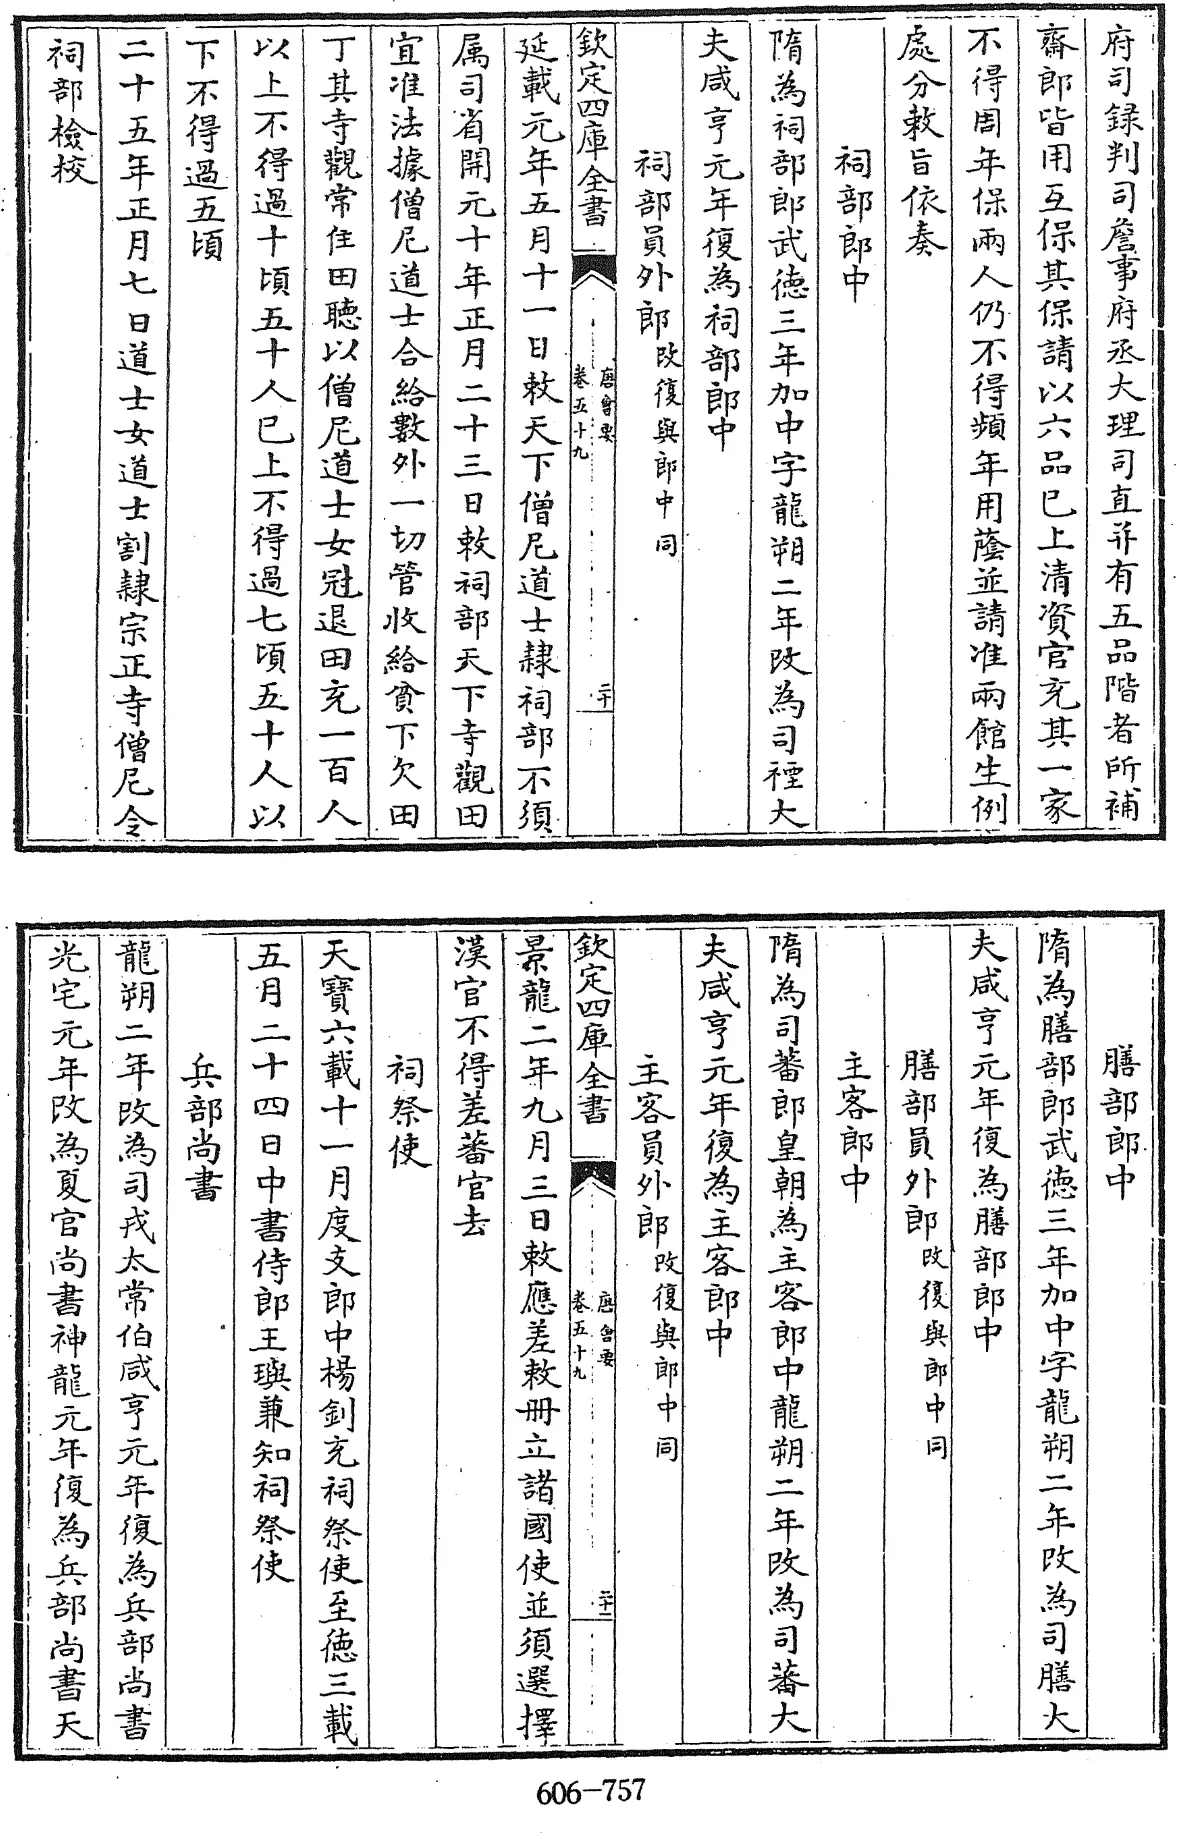 府司録判司詹事府丞大理司直并有五品階者所補
齋郎皆用互保其保請以六品已上清資官充其一家
不得周年保兩人仍不得頻年用蔭並請准兩館生例
處分敕旨依奏
祠部郎中
隋為祠部郎武徳三年加中字龍朔二年改為司禋大
夫咸亨元年復為祠部郎中
祠部員外郎改復與郎中同
欽定四庫全書
唐會要
卷五十九
二十
延載元年五月十一日敕天下僧尼道士隷祠部不須
属司省開元十年正月二十三日敕祠部天下寺觀田
宜准法據僧尼道士合給數外一切管收給貧下欠田
丁其寺觀常住田聽以僧尼道士女冠退田充一百人
以上不得過十頃五十人已上不得過七頃五十人以
下不得過五頃
二十五年正月七日道士女道士割隷宗正寺僧尼令
祠部檢校
膳部郎中
隋為膳部郎武徳三年加中字龍朔二年改為司膳大
夫咸亨元年復為膳部郎中
膳部員外郎改復與郎中同
主客郎中
隋為司蕃郎皇朝為主客郎中龍朔二年改為司蕃大
夫咸亨元年復為主客郎中
主客員外郎改復與郎中同
欽定四庫全書
唐會要
卷五十九
二十一
景龍二年九月三日敕應差敕冊立諸國使並須選擇
漢官不得差蕃官去
祠祭使
天寶六載十一月度支郎中楊釗充祠祭使至徳三載
五月二十四日中書侍郎王璵兼知祠祭使
兵部尚書
龍朔二年改為司戎太常伯咸亨元年復為兵部尚書
光宅元年改為夏官尚書神龍元年復為兵部尚書天
606-757